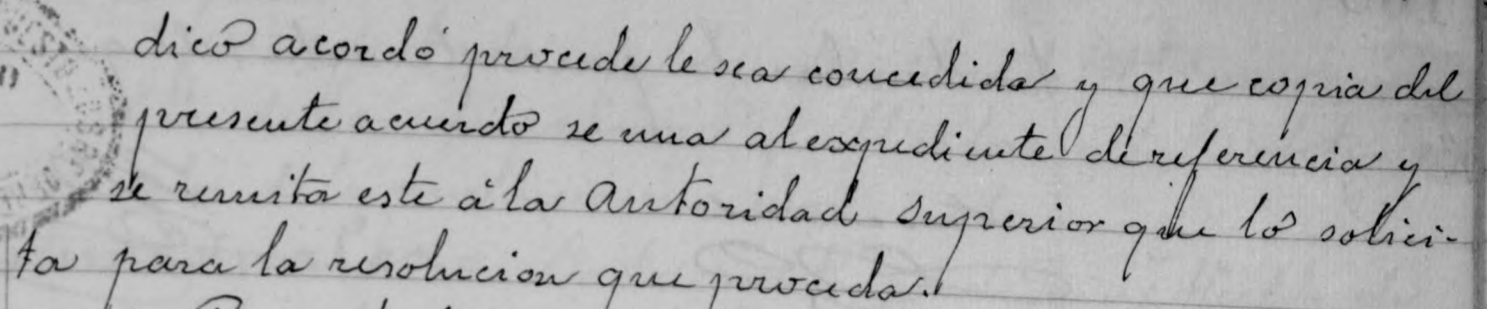 dico acordó procede le sea concedida y que copia del
presente acuerdo se una al expediente de referencia y
se remita este á la Autoridad Superior que lo solici-
ta para la resolucion que proceda.